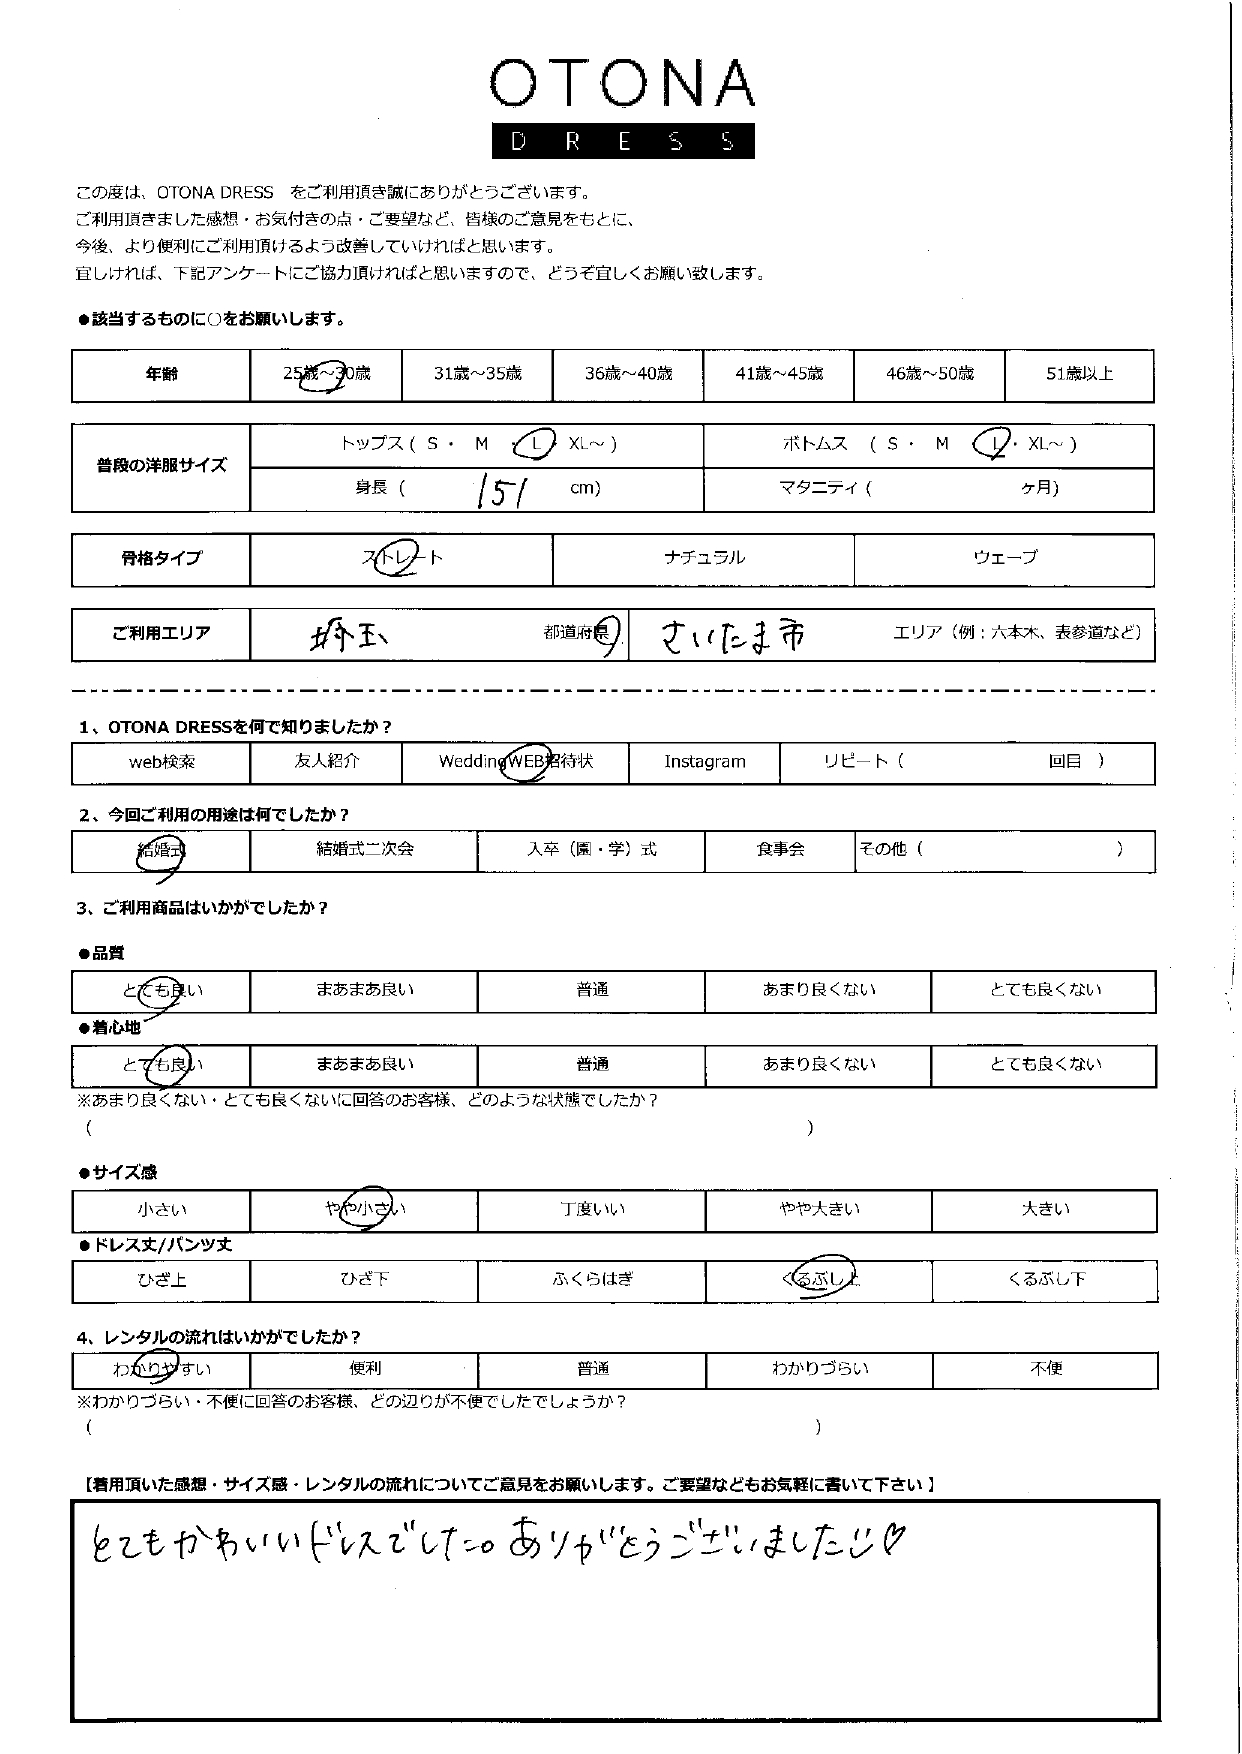 OTONA
DRESS
この度は、OTONA DRESS をご利用頂き誠にありがとうございます。
ご利用頂きました感想・お気付きの点・ご要望など、皆様のご意見をもとに、
今後、より便利にご利用頂けるよう改善していければと思います。
宜しければ、下記アンケートにご協力頂ければと思いますので、どうぞ宜しくお願い致します。
●該当するものに○をお願いします。
年齢 25歳～30歳 31歳～35歳 36歳～40歳 41歳～45歳 46歳～50歳 51歳以上
普段の洋服サイズ トップス ( S ・ M ・ L ・ XL～ ) ボトムス ( S ・ M ・ L ・ XL～ )
身長 ( 151 cm) マタニティ ( ヶ月)
骨格タイプ ストレート ナチュラル ウェーブ
ご利用エリア 埼玉 都道府県 さいたま市 エリア（例：六本木、表参道など）
1、OTONA DRESSを何で知りましたか？
web検索 友人紹介 WeddingWEB招待状 Instagram リピート ( 回目 )
2、今回ご利用の用途は何でしたか？
結婚式 結婚式二次会 入卒（園・学）式 食事会 その他 ( )
3、ご利用商品はいかがでしたか？
●品質
とても良い まあまあ良い 普通 あまり良くない とても良くない
●着心地
とても良い まあまあ良い 普通 あまり良くない とても良くない
※あまり良くない・とても良くないに回答のお客様、どのような状態でしたか？
( )
●サイズ感
小さい やや小さい 丁度いい やや大きい 大きい
●ドレス丈/パンツ丈
ひざ上 ひざ下 ふくらはぎ くるぶし上 くるぶし下
4、レンタルの流れはいかがでしたか？
わかりやすい 便利 普通 わかりづらい 不便
※わかりづらい・不便に回答のお客様、どの辺りが不便でしたでしょうか？
( )
【着用頂いた感想・サイズ感・レンタルの流れについてご意見をお願いします。ご要望などもお気軽に書いて下さい】
とてもかわいいドレスでした。ありがとうございました♡